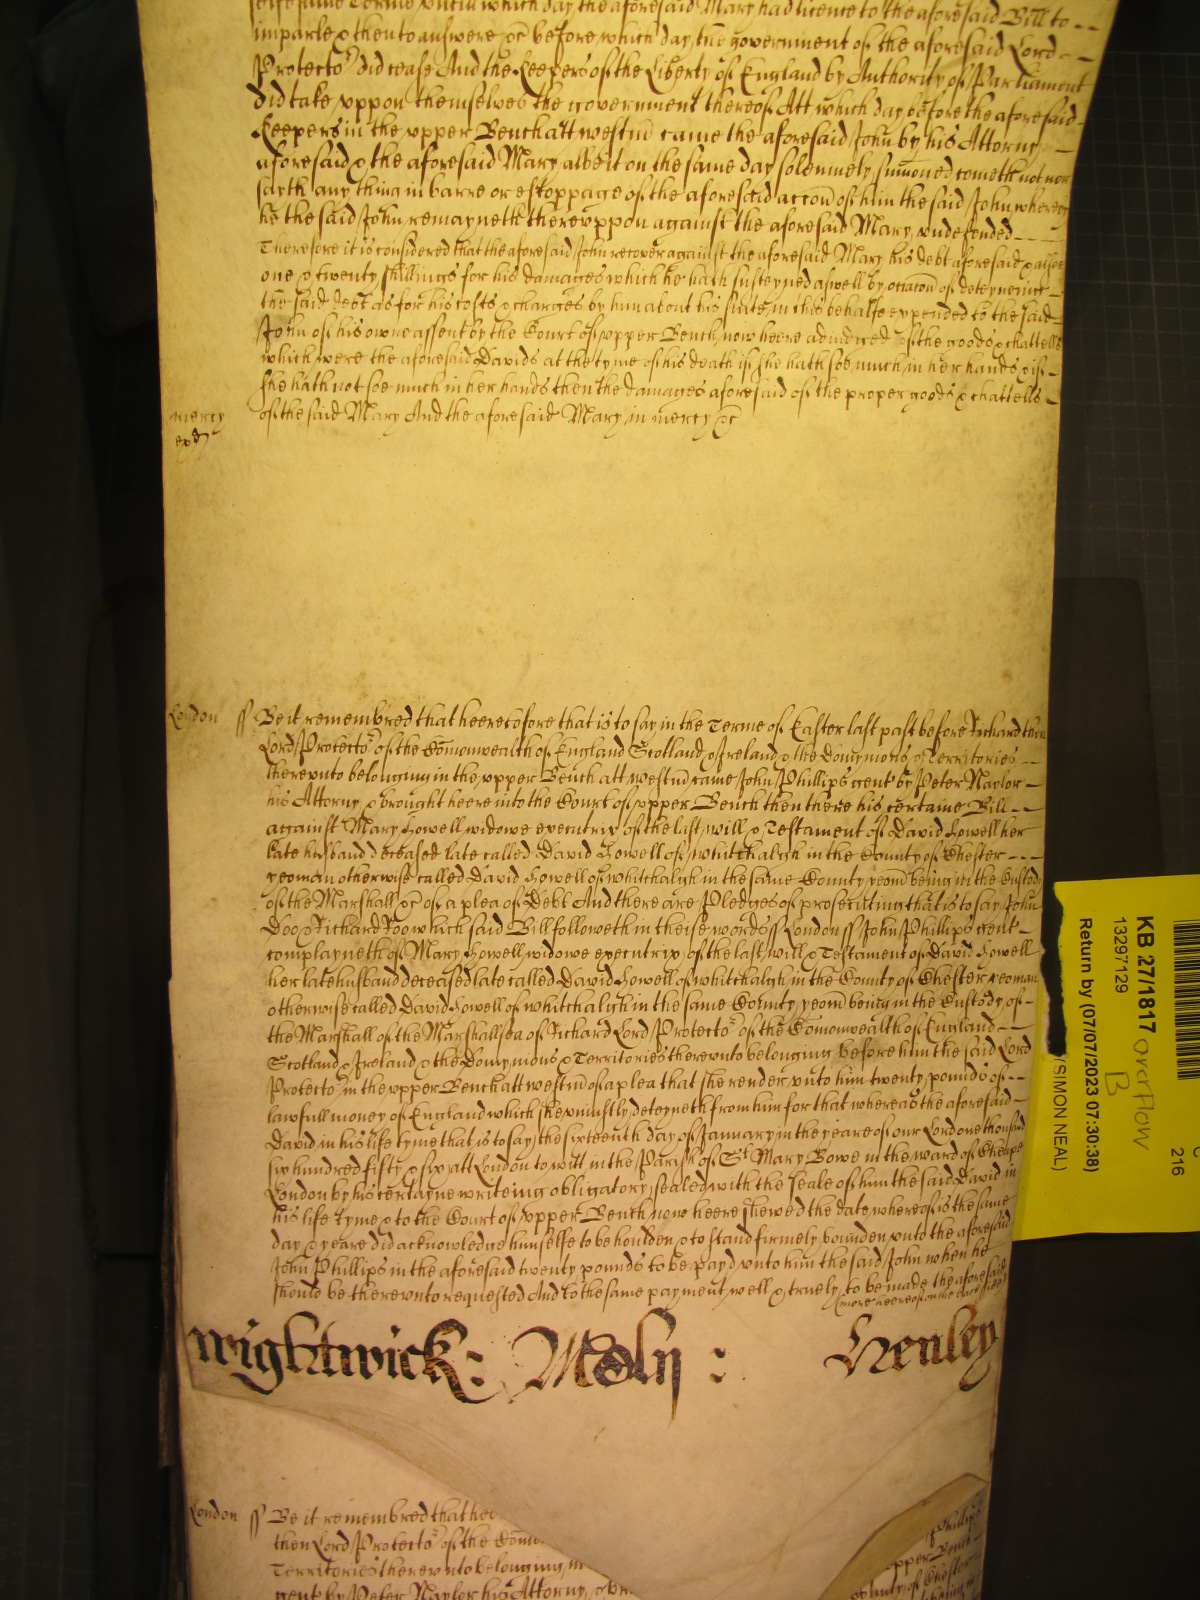 selfesame Terme untill which day the aforesaid Mary had licence to the aforesaid Bill to
imparle & then to answere &c before which day the government of the aforesaid Lord
Protector did cease And the Keepers of the Liberty of England by Authority of Parliament
did take uppon themselves the government thereof Att which day before the aforesaid
Keepers in the upper Bench att westm came the aforesaid John by his Attorny
aforesaid & the aforesaid Mary albeit on the same day solemnely sumoned cometh not nor
sayth any thing in barre or estoppage of the aforesaid accon of him the said John whereby
he the said John remayneth thereuppon against the aforesaid Mary undefended
Therefore it is considered that the aforesaid John recover against the aforesaid Mary his debt aforesaid & alsoe
one & twenty shillings for his damages which he hath susteyned aswell by occacon of deteyneing
the said debt as for his costs & charges by him about his suite in this behalfe expended to the said
John of his owne assent by the Court of upper Bench now heere adiudged of the goods & chattells
which were the aforesaid Davids at the tyme of his death if she hath soe much in her hands & if
she hath not soe much in her hands then the damages aforesaid of the proper goods & chattells
mercy
of the said Mary And the aforesaid Mary in mercy &c
London ss Be it remembred that heeretofore that is to say in the Terme of Easter last past before Richard then
Lord Protector of the Comonwealth of England Scotland & Ireland & the Domynions & Territories
thereunto belonging in the upper Bench att westm came John Phillips gent by Peter Naylor
his Attorny & brought heere into the Court of upper Bench then there his certaine Bill
against Mary Howell widowe executrix of the last will & Testament of David Howell her
late husband deceased late called David Howell of whitchalgh in the County of Chester
yeoman otherwise called David Howell of whitchalgh in the same County yeom being in the Custody
of the Marshall &c of a plea of Debt And there are Pledges of prosecuting that is to say John
Doo & Richard Roo which said Bill followeth in theise words ss London ss John Phillips gent
complayneth of Mary Howell widowe executrix of the last will & Testament of David Howell
her late husband deceased late called David Howell of whitchalgh in the County of Chester yeoman
otherwise called David Howell of whitchalgh in the same County yeom being in the Custody of
the Marshall of the Marshallsea of Richard Lord Protector of the Comonwealth of England
Scotland & Ireland & the Domynions & Territories thereunto belonging before him the said Lord
Protector in the upper Bench att westm of a plea that she render unto him twenty pounds of
lawfull money of England which she uniustly deteyneth from him for that whereas the aforesaid
David in his life tyme that is to say the sixteenth day of January in the yeare of our Lord one thousand
six hundred fifty & six att London to witt in the Parish of St Mary Bowe in the ward of Cheape
London by his certayne writeing obligatory sealed with the seale of him the said David in
his life tyme & to the Court of upper Bench now heere shewed the date whereof is the same
day & yeare did acknowledge himselfe to be houlden & to stand firmely bounden unto the aforesaid
John Phillips in the aforesaid twenty pounds to be payd unto him the said John when he
should be thereunto requested And to the same payment well & truely to be made the aforesaid
(more heereof on the
wightwick: :
Henley
London ss Be it remembred that hee
then Lord Protector of the Como
Territories thereunto belonging in
gent by Peter Naylor his Attorny & br
Phillips
upper Bench
County of Chester
KB 27/1817 overflow
B
13297129
Return by (07/07/2023 07:30:38)
(SIMON NEAL)
216